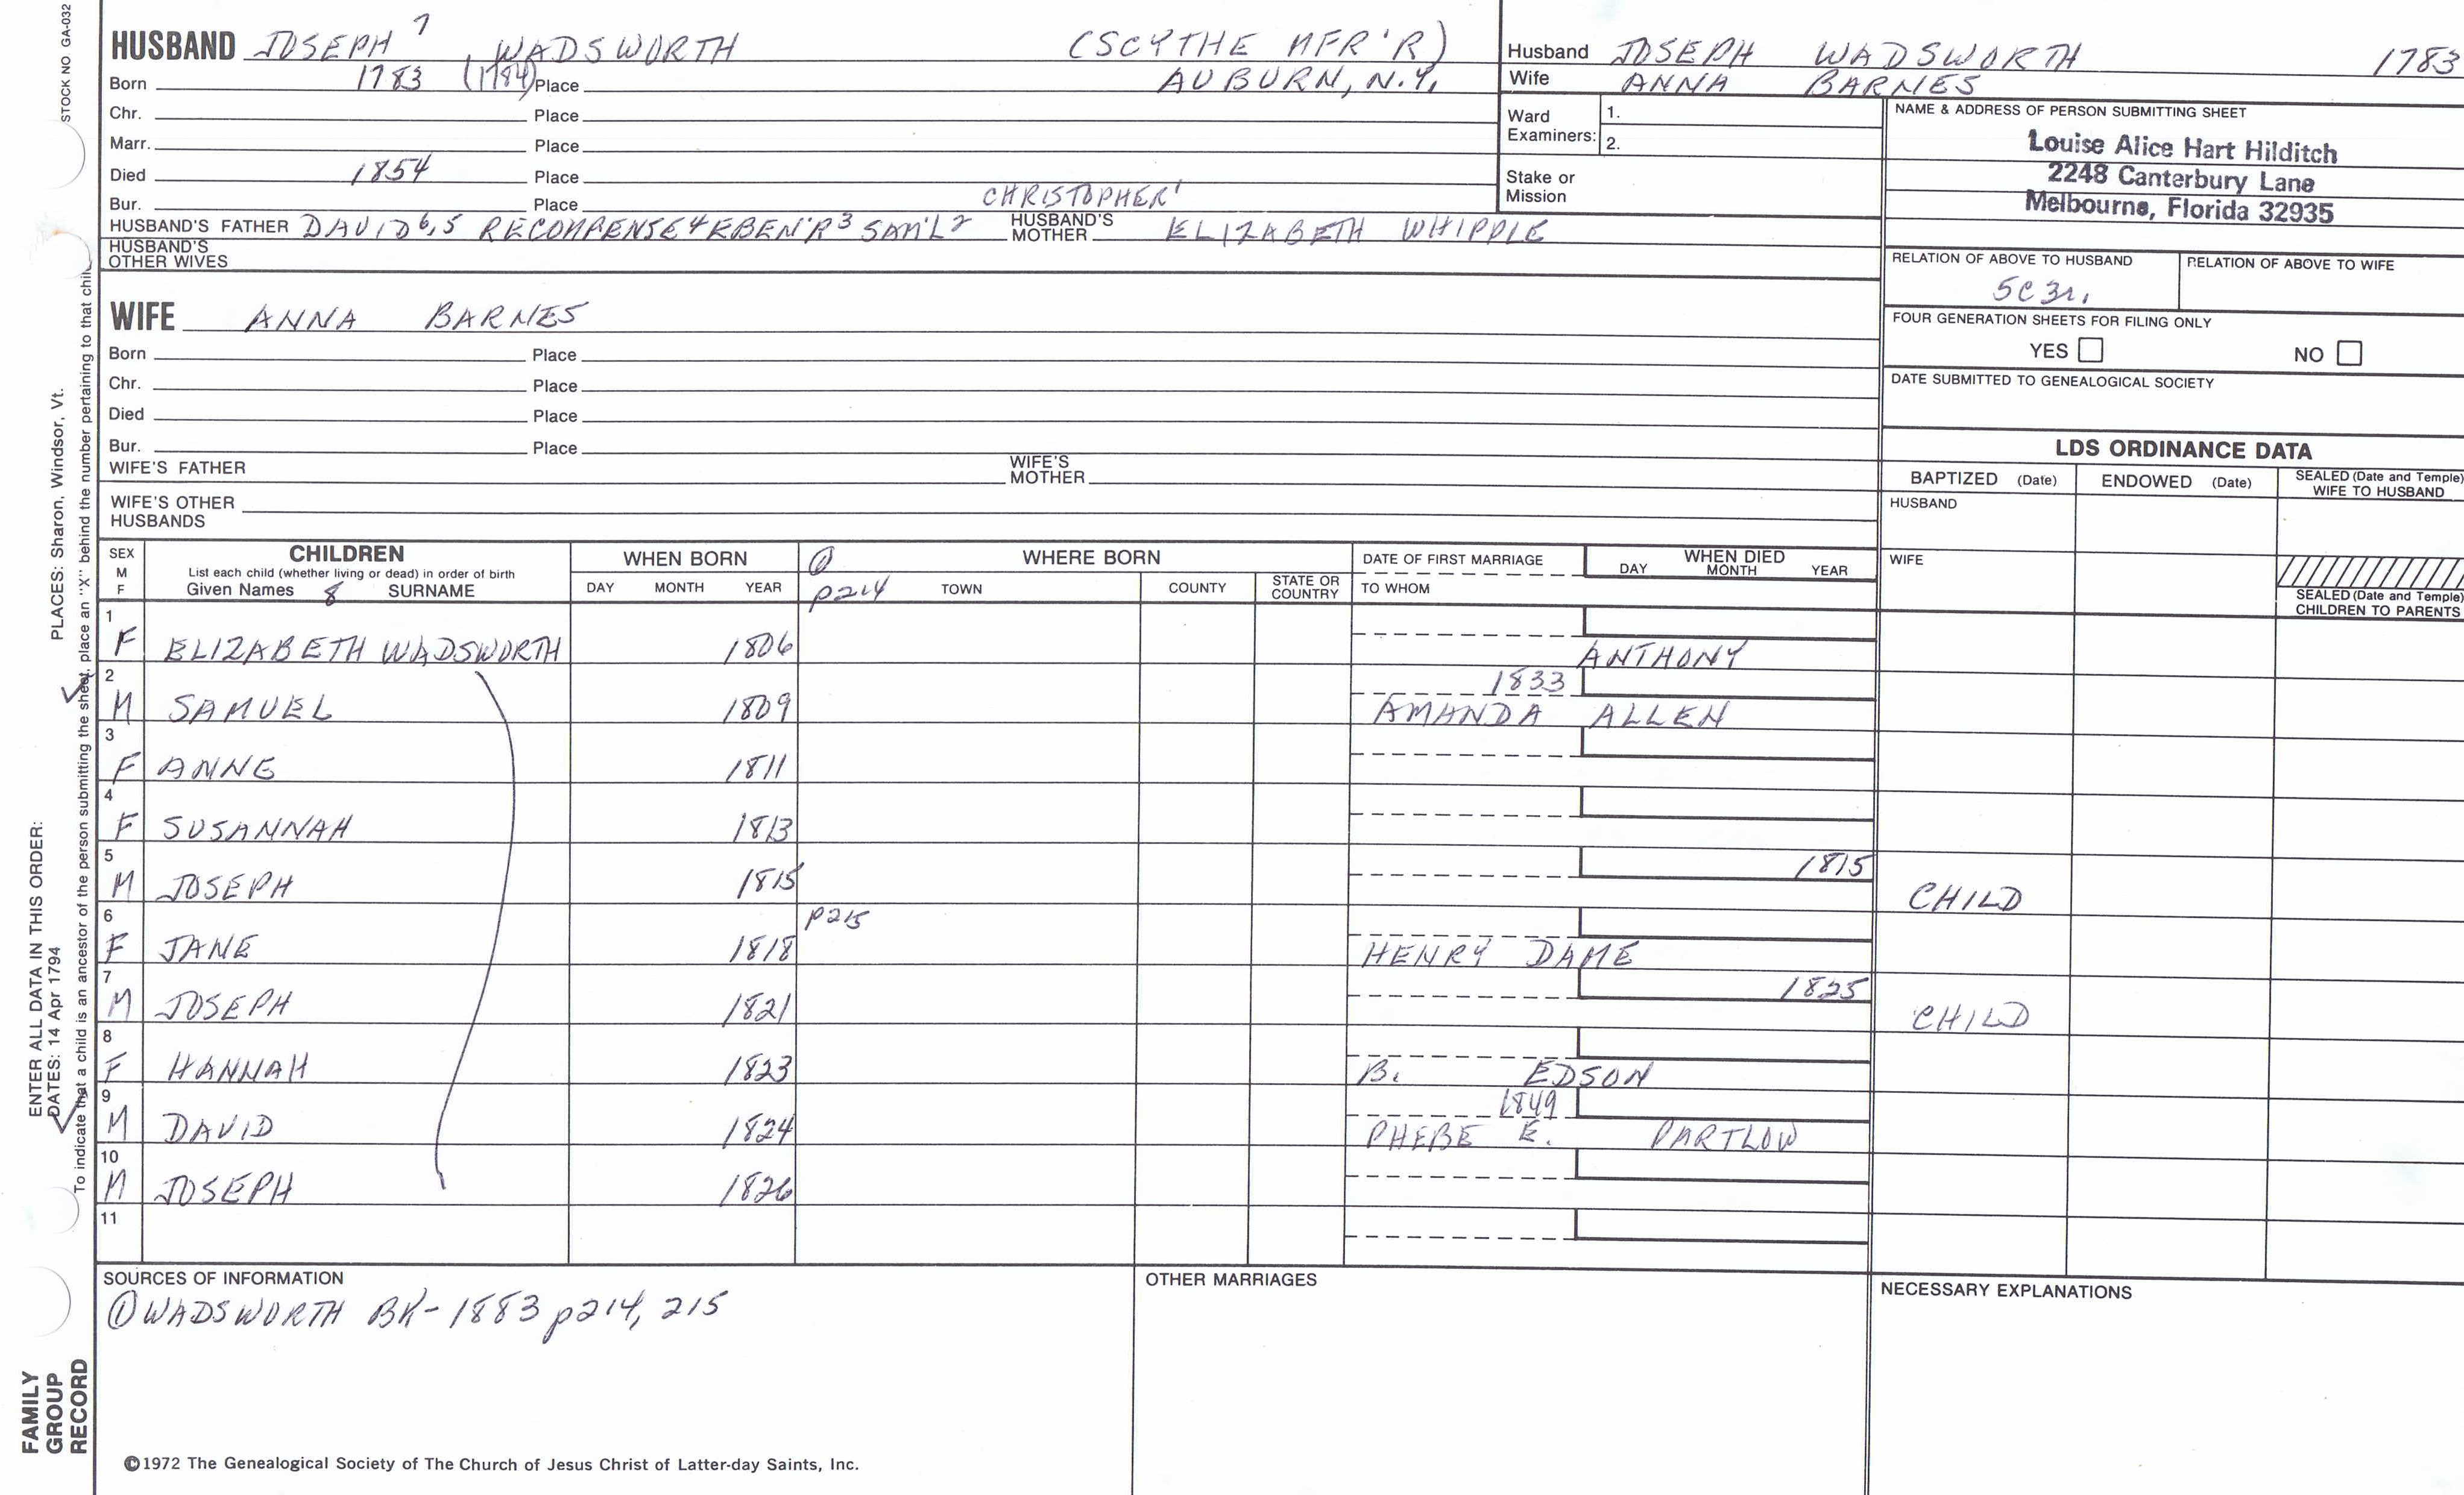 STOCK NO GA-032
HUSBAND JOSEPH 7 WADSWORTH (SCYTHE MFR'R)
Born 1783 (1784) Place AUBURN, N.Y.
Chr. Place
Marr. Place
Died 1854 Place
Bur. Place CHRISTOPHER 1
HUSBAND'S FATHER DAVID 6,5 RECOMPENSE 4 EBEN'R 3 SAM'L 2 HUSBAND'S MOTHER ELIZABETH WHIPPLE
HUSBAND'S OTHER WIVES
Husband JOSEPH WADSWORTH 1783
Wife ANNA BARNES
Ward Examiners: 1.
2.
Stake or Mission
NAME & ADDRESS OF PERSON SUBMITTING SHEET
Louise Alice Hart Hilditch
2248 Canterbury Lane
Melbourne, Florida 32935
RELATION OF ABOVE TO HUSBAND RELATION OF ABOVE TO WIFE
5C3r.
FOUR GENERATION SHEETS FOR FILING ONLY
YES NO
DATE SUBMITTED TO GENEALOGICAL SOCIETY
WIFE ANNA BARNES
Born Place
Chr. Place
Died Place
Bur. Place
WIFE'S FATHER WIFE'S MOTHER
WIFE'S OTHER HUSBANDS
LDS ORDINANCE DATA
BAPTIZED (Date) ENDOWED (Date) SEALED (Date and Temple) WIFE TO HUSBAND
HUSBAND
WIFE
SEALED (Date and Temple) CHILDREN TO PARENTS
SEX M F CHILDREN WHEN BORN ① WHERE BORN DATE OF FIRST MARRIAGE WHEN DIED
List each child (whether living or dead) in order of birth
Given Names 8 SURNAME DAY MONTH YEAR p214 TOWN COUNTY STATE OR COUNTRY TO WHOM DAY MONTH YEAR
1 F ELIZABETH WADSWORTH 1806 ANTHONY
2 M SAMUEL 1809 1833 AMANDA ALLEN
3 F ANNE 1811
4 F SUSANNAH 1813
5 M JOSEPH 1815 1815 CHILD
6 F JANE 1818 p215 HENRY DAME
7 M JOSEPH 1821 1825 CHILD
8 F HANNAH 1823 B. EDSON
9 M DAVID 1824 1849 PHEBE E. PARTLOW
10 M JOSEPH 1826
11
SOURCES OF INFORMATION
① WADSWORTH BK-1883 p214, 215
OTHER MARRIAGES
NECESSARY EXPLANATIONS
©1972 The Genealogical Society of The Church of Jesus Christ of Latter-day Saints, Inc.
FAMILY
GROUP
RECORD
ENTER ALL DATA IN THIS ORDER:
DATES: 14 Apr 1794 PLACES: Sharon, Windsor, Vt.
To indicate that a child is an ancestor of the person submitting the sheet, place an "X" behind the number pertaining to that child